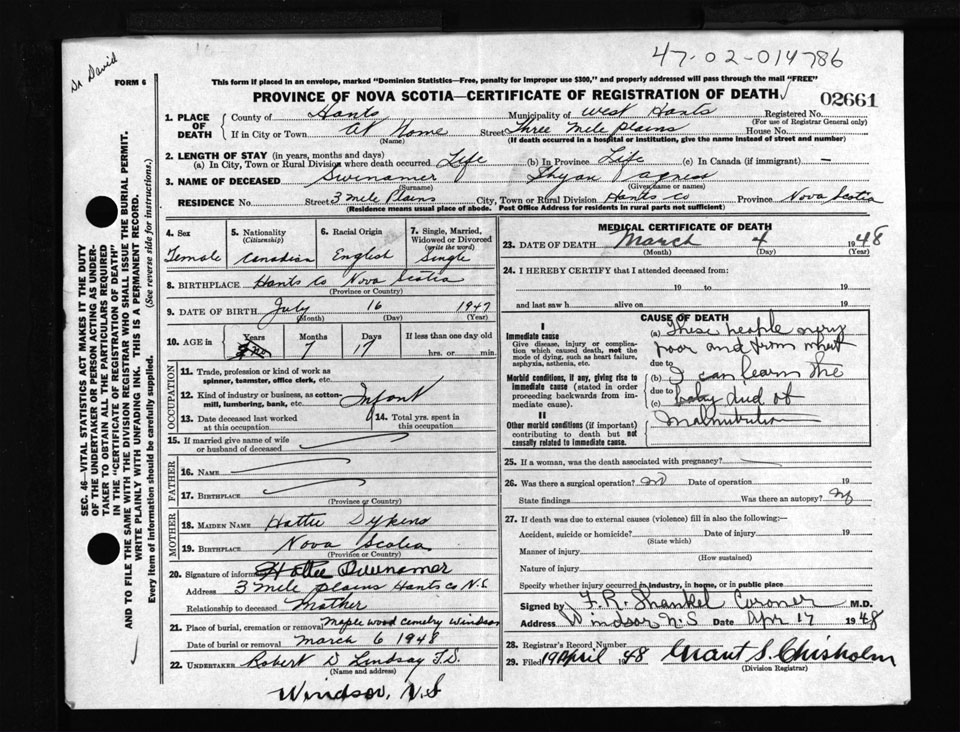 47-02-014786
Dr David
FORM 6
This form if placed in an envelope, marked "Dominion Statistics—Free, penalty for improper use $300," and properly addressed will pass through the mail "FREE"
PROVINCE OF NOVA SCOTIA—CERTIFICATE OF REGISTRATION OF DEATH
02661
1. PLACE OF DEATH
County of Hants Municipality of West Hants Registered No.
(For use of Registrar General only)
If in City or Town At Home Street Three Mile Plains House No.
(Name) (If death occurred in hospital or institution, give the name instead of street and number)
2. LENGTH OF STAY (in years, months and days)
(a) In City, Town or Rural Division where death occurred Life (b) In Province Life (c) In Canada (if immigrant) —
3. NAME OF DECEASED Swinamer Agness
(Surname) (Given name or names)
RESIDENCE No. Street 3 Mile Plains City, Town or Rural Division Hants Co Province Nova Scotia
(Residence means usual place of abode. Post Office Address for residents in rural parts not sufficient)
4. Sex Female
5. Nationality (Citizenship) Canadian
6. Racial Origin English
7. Single, Married, Widowed or Divorced (write the word) Single
8. BIRTHPLACE Hants Co Nova Scotia
(Province or Country)
9. DATE OF BIRTH July 16 1947
(Month) (Day) (Year)
10. AGE in Years Months 7 Days 17 If less than one day old
hrs. or min.
OCCUPATION
11. Trade, profession or kind of work as spinner, teamster, office clerk, etc.
12. Kind of industry or business, as cotton-mill, lumbering, bank, etc. Infant
13. Date deceased last worked at this occupation
14. Total yrs. spent in this occupation
15. If married give name of wife or husband of deceased
FATHER
16. NAME
17. BIRTHPLACE
(Province or Country)
MOTHER
18. MAIDEN NAME Hattie Dykens
19. BIRTHPLACE Nova Scotia
(Province or Country)
20. Signature of informant Hattie Swinamer
Address 3 Mile Plains Hants Co N.S.
Relationship to deceased Mother
21. Place of burial, cremation or removal Maplewood Cemetry Windsor
Date of burial or removal March 6 1948
22. UNDERTAKER Robert D Lindsay F.D.
(Name and address)
Windsor, N.S
MEDICAL CERTIFICATE OF DEATH
23. DATE OF DEATH March 4 1948
(Month) (Day) (Year)
24. I HEREBY CERTIFY that I attended deceased from:
19 to 19
and last saw h alive on 19
CAUSE OF DEATH
I
Immediate cause
Give disease, injury or complication which caused death, not the mode of dying, such as heart failure, asphyxia, asthenia, etc.
Morbid conditions, if any, giving rise to immediate cause (stated in order proceeding backwards from immediate cause).
II
Other morbid conditions (if important) contributing to death but not causally related to immediate cause.
(a) These people very
poor and from what
due to
(b) I can learn the
due to
(c) baby died of
Malnutrition
25. If a woman, was the death associated with pregnancy?
26. Was there a surgical operation? no Date of operation 19
State findings Was there an autopsy? no
27. If death was due to external causes (violence) fill in also the following:—
Accident, suicide or homicide? Date of injury 19
(State which)
Manner of injury
(How sustained)
Nature of injury
Specify whether injury occurred in industry, in home, or in public place
Signed by F. R. Shankel Coroner M.D.
Address Windsor N.S Date Apr 17 1948
28. Registrar's Record Number
29. Filed 19 April 1948 Grant S. Chisholm
(Division Registrar)
SEC. 46—VITAL STATISTICS ACT MAKES IT THE DUTY
OF THE UNDERTAKER OR PERSON ACTING AS UNDER-
TAKER TO OBTAIN ALL THE PARTICULARS REQUIRED
IN THE "CERTIFICATE OF REGISTRATION OF DEATH"
AND TO FILE THE SAME WITH THE DIVISION REGISTRAR WHO SHALL ISSUE THE BURIAL PERMIT.
WRITE PLAINLY WITH UNFADING INK. THIS IS A PERMANENT RECORD.
Every item of information should be carefully supplied. (See reverse side for instructions.)